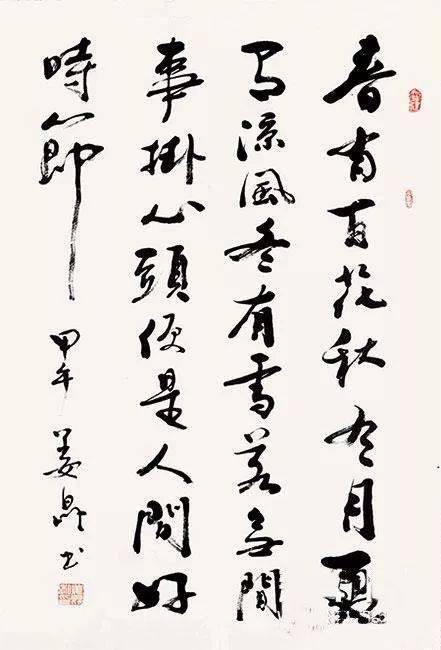 春有百花秋有月夏
有涼風冬有雪若無閒
事掛心頭便是人間好
時節
甲午 姜昆书